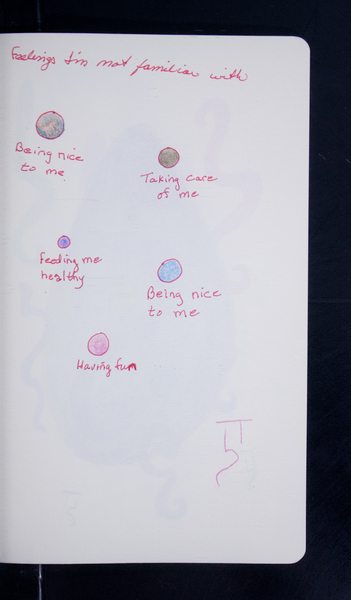 Feelings I'm not familiar with
Being nice
to me
Taking care
of me
Feeding me
healthy
Being nice
to me
Having fun